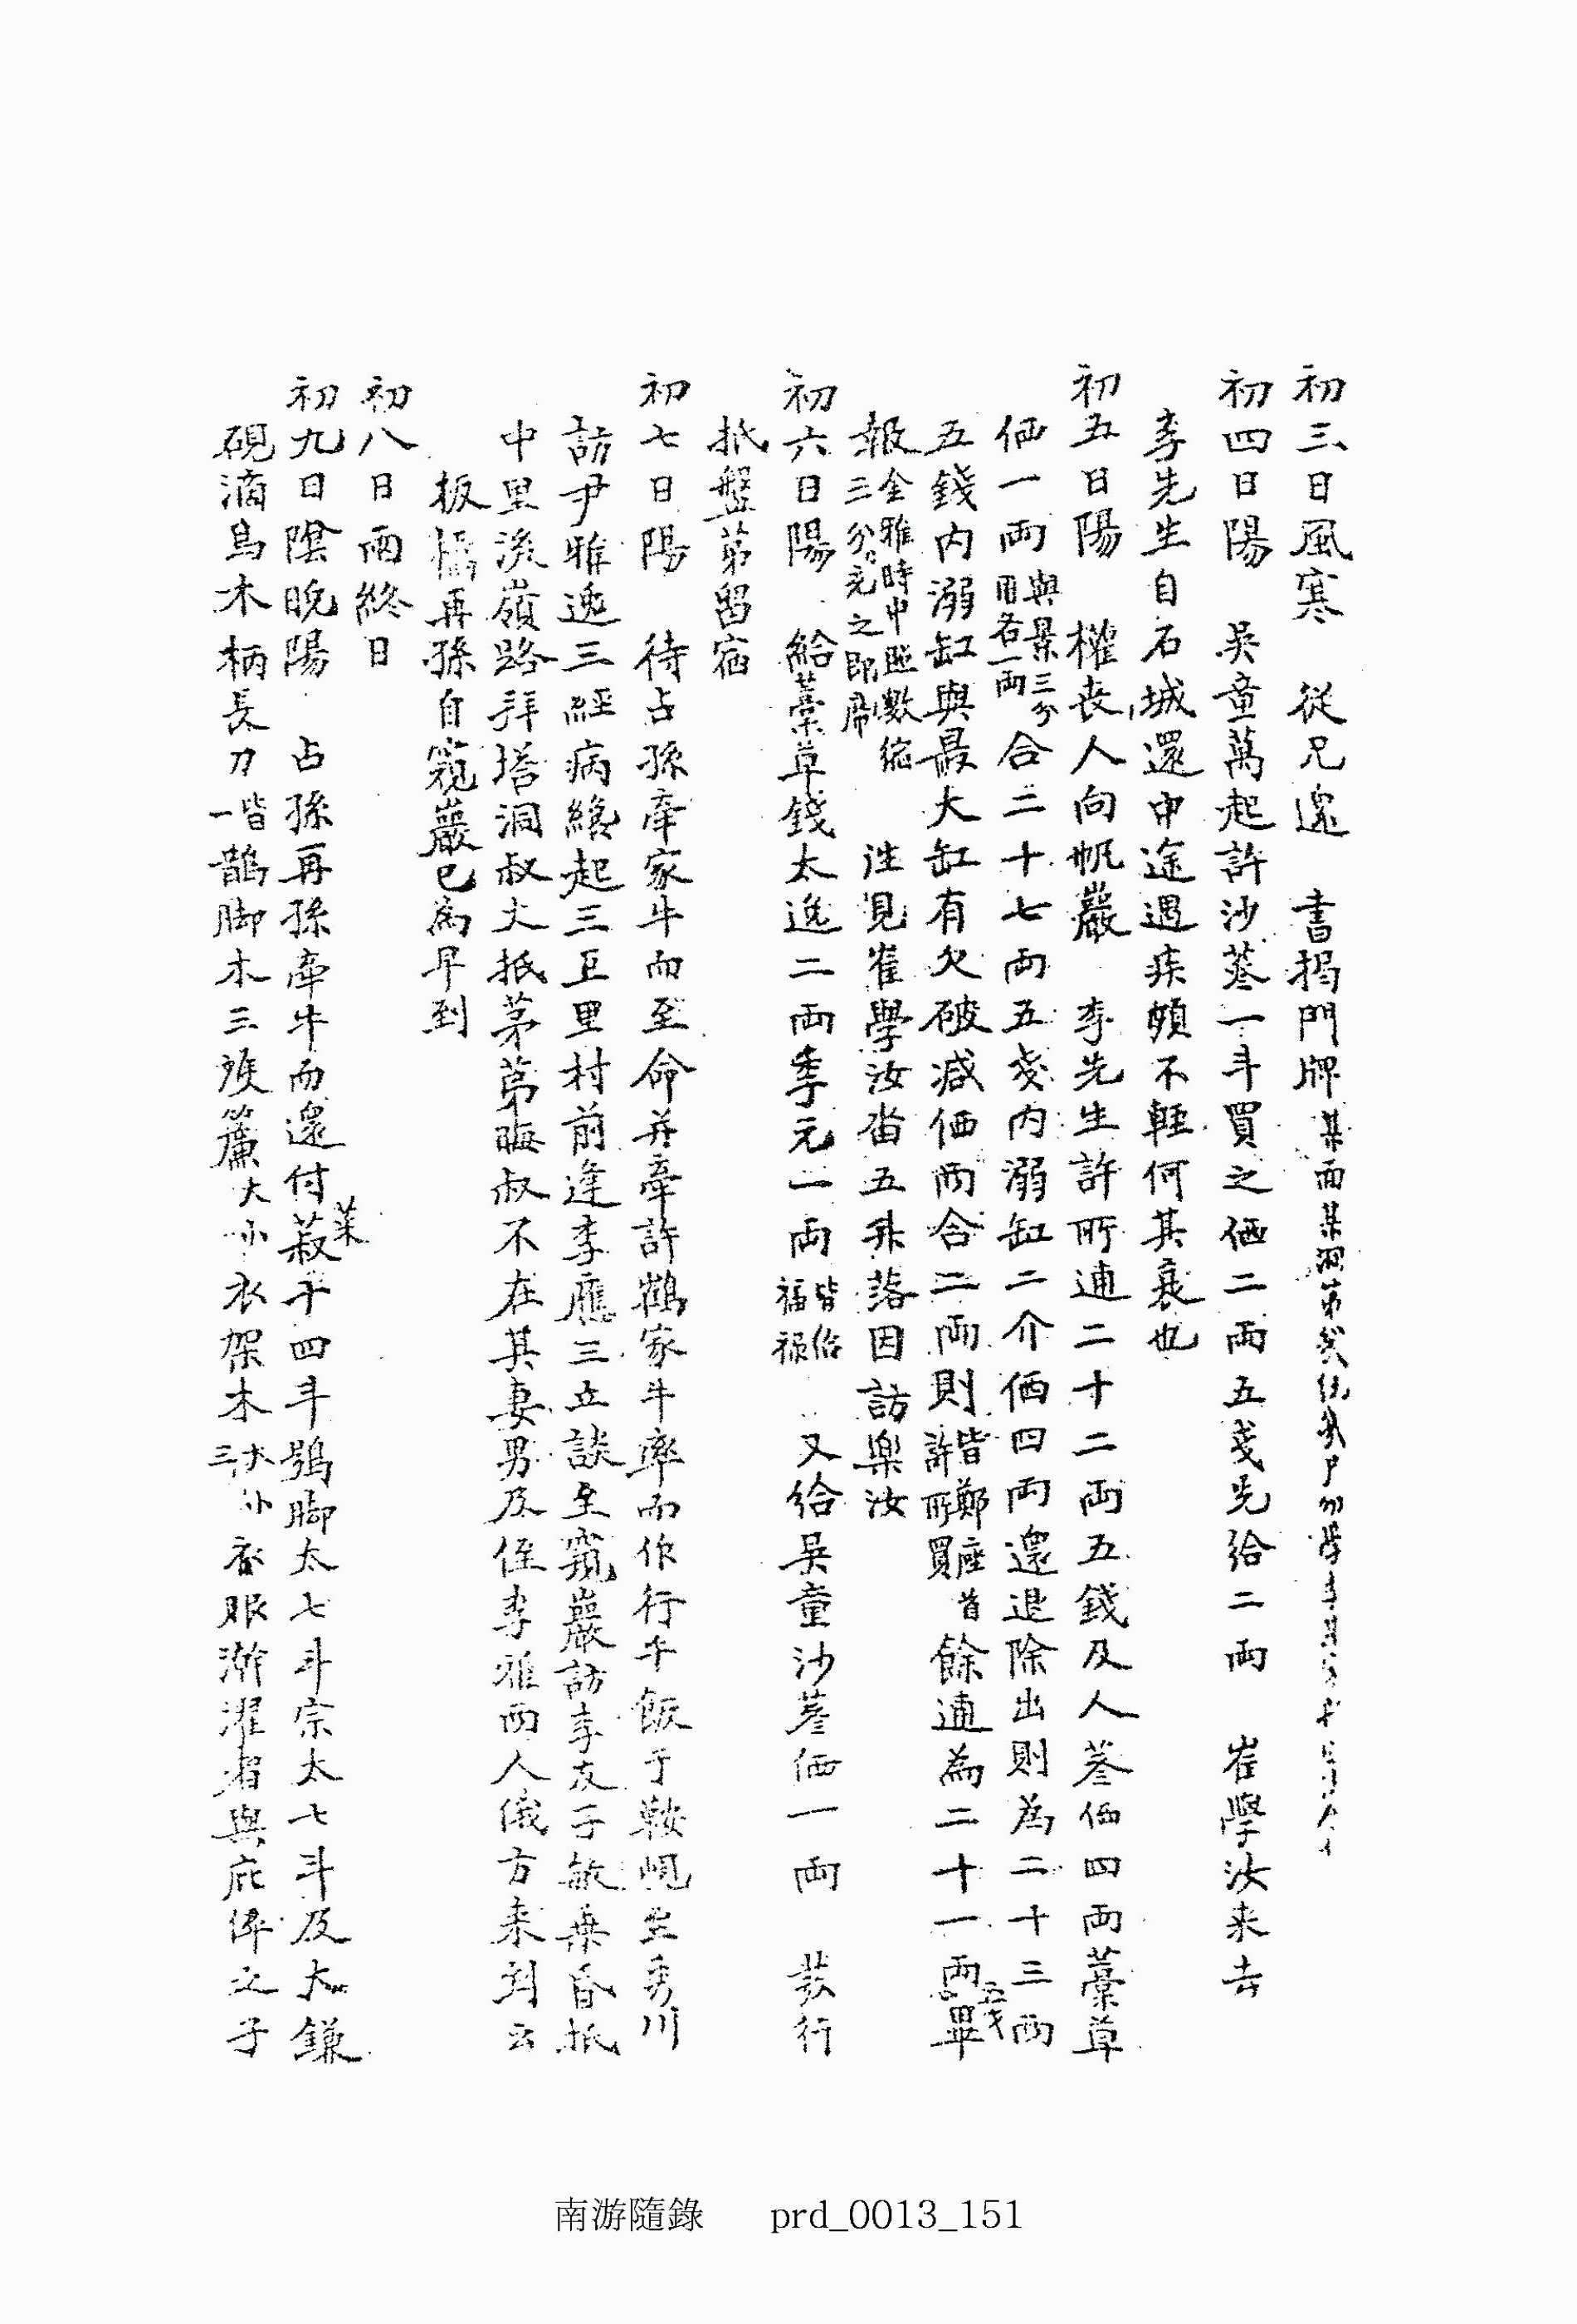 初三日風寒 從兄還 書揭門牌 某面某洞第
初四日陽 吳童萬起許沙蔘一斗買之価二兩五戔先給二兩 崔學汝来去
李先生自石城還中途遇疾頗不輕何其衰也
初五日陽 權丧人向帆巖 李先生許所逋二十二兩五錢及人蔘価四兩藁草
価一兩 與景三分用各一兩 合二十七兩五戔内溺缸二介価四兩還退除出則為二十三兩
五錢内溺缸與最大缸有欠破减価兩合二兩則 皆鄭座首許所買 餘逋為二十一兩五戔畢
報 全雅時中 數縮三分 之即 徃見崔學汝畓五升落因訪樂汝
初六日陽 給藁草錢太逸二兩季元一兩 皆給福祿 又給吳童沙蔘価一兩 裝行
抵盤第留宿
初七日陽 待占孫牽家牛而至命并牽許鶴家牛率而作行午飯于鞍峴至秀川
訪尹雅逸三經病纔起三巨里村前逢李應三立談至窺巖訪李友子敏乘昏抵
中里後嶺路拜塔洞叔丈抵茅苐晦叔不在其妻男及侄李雅兩人俄方来到云
板橋再孫自窺巖已為早到
初八日雨終日
初九日陰晩陽 占孫再孫牽牛而還付菽子四斗鵶脚太七斗宗太七斗及大鎌
硯滴烏木柄長刀 皆一 鵲脚木三 簾大小衣架木 大小三 春服澣濯者與庇婢之子